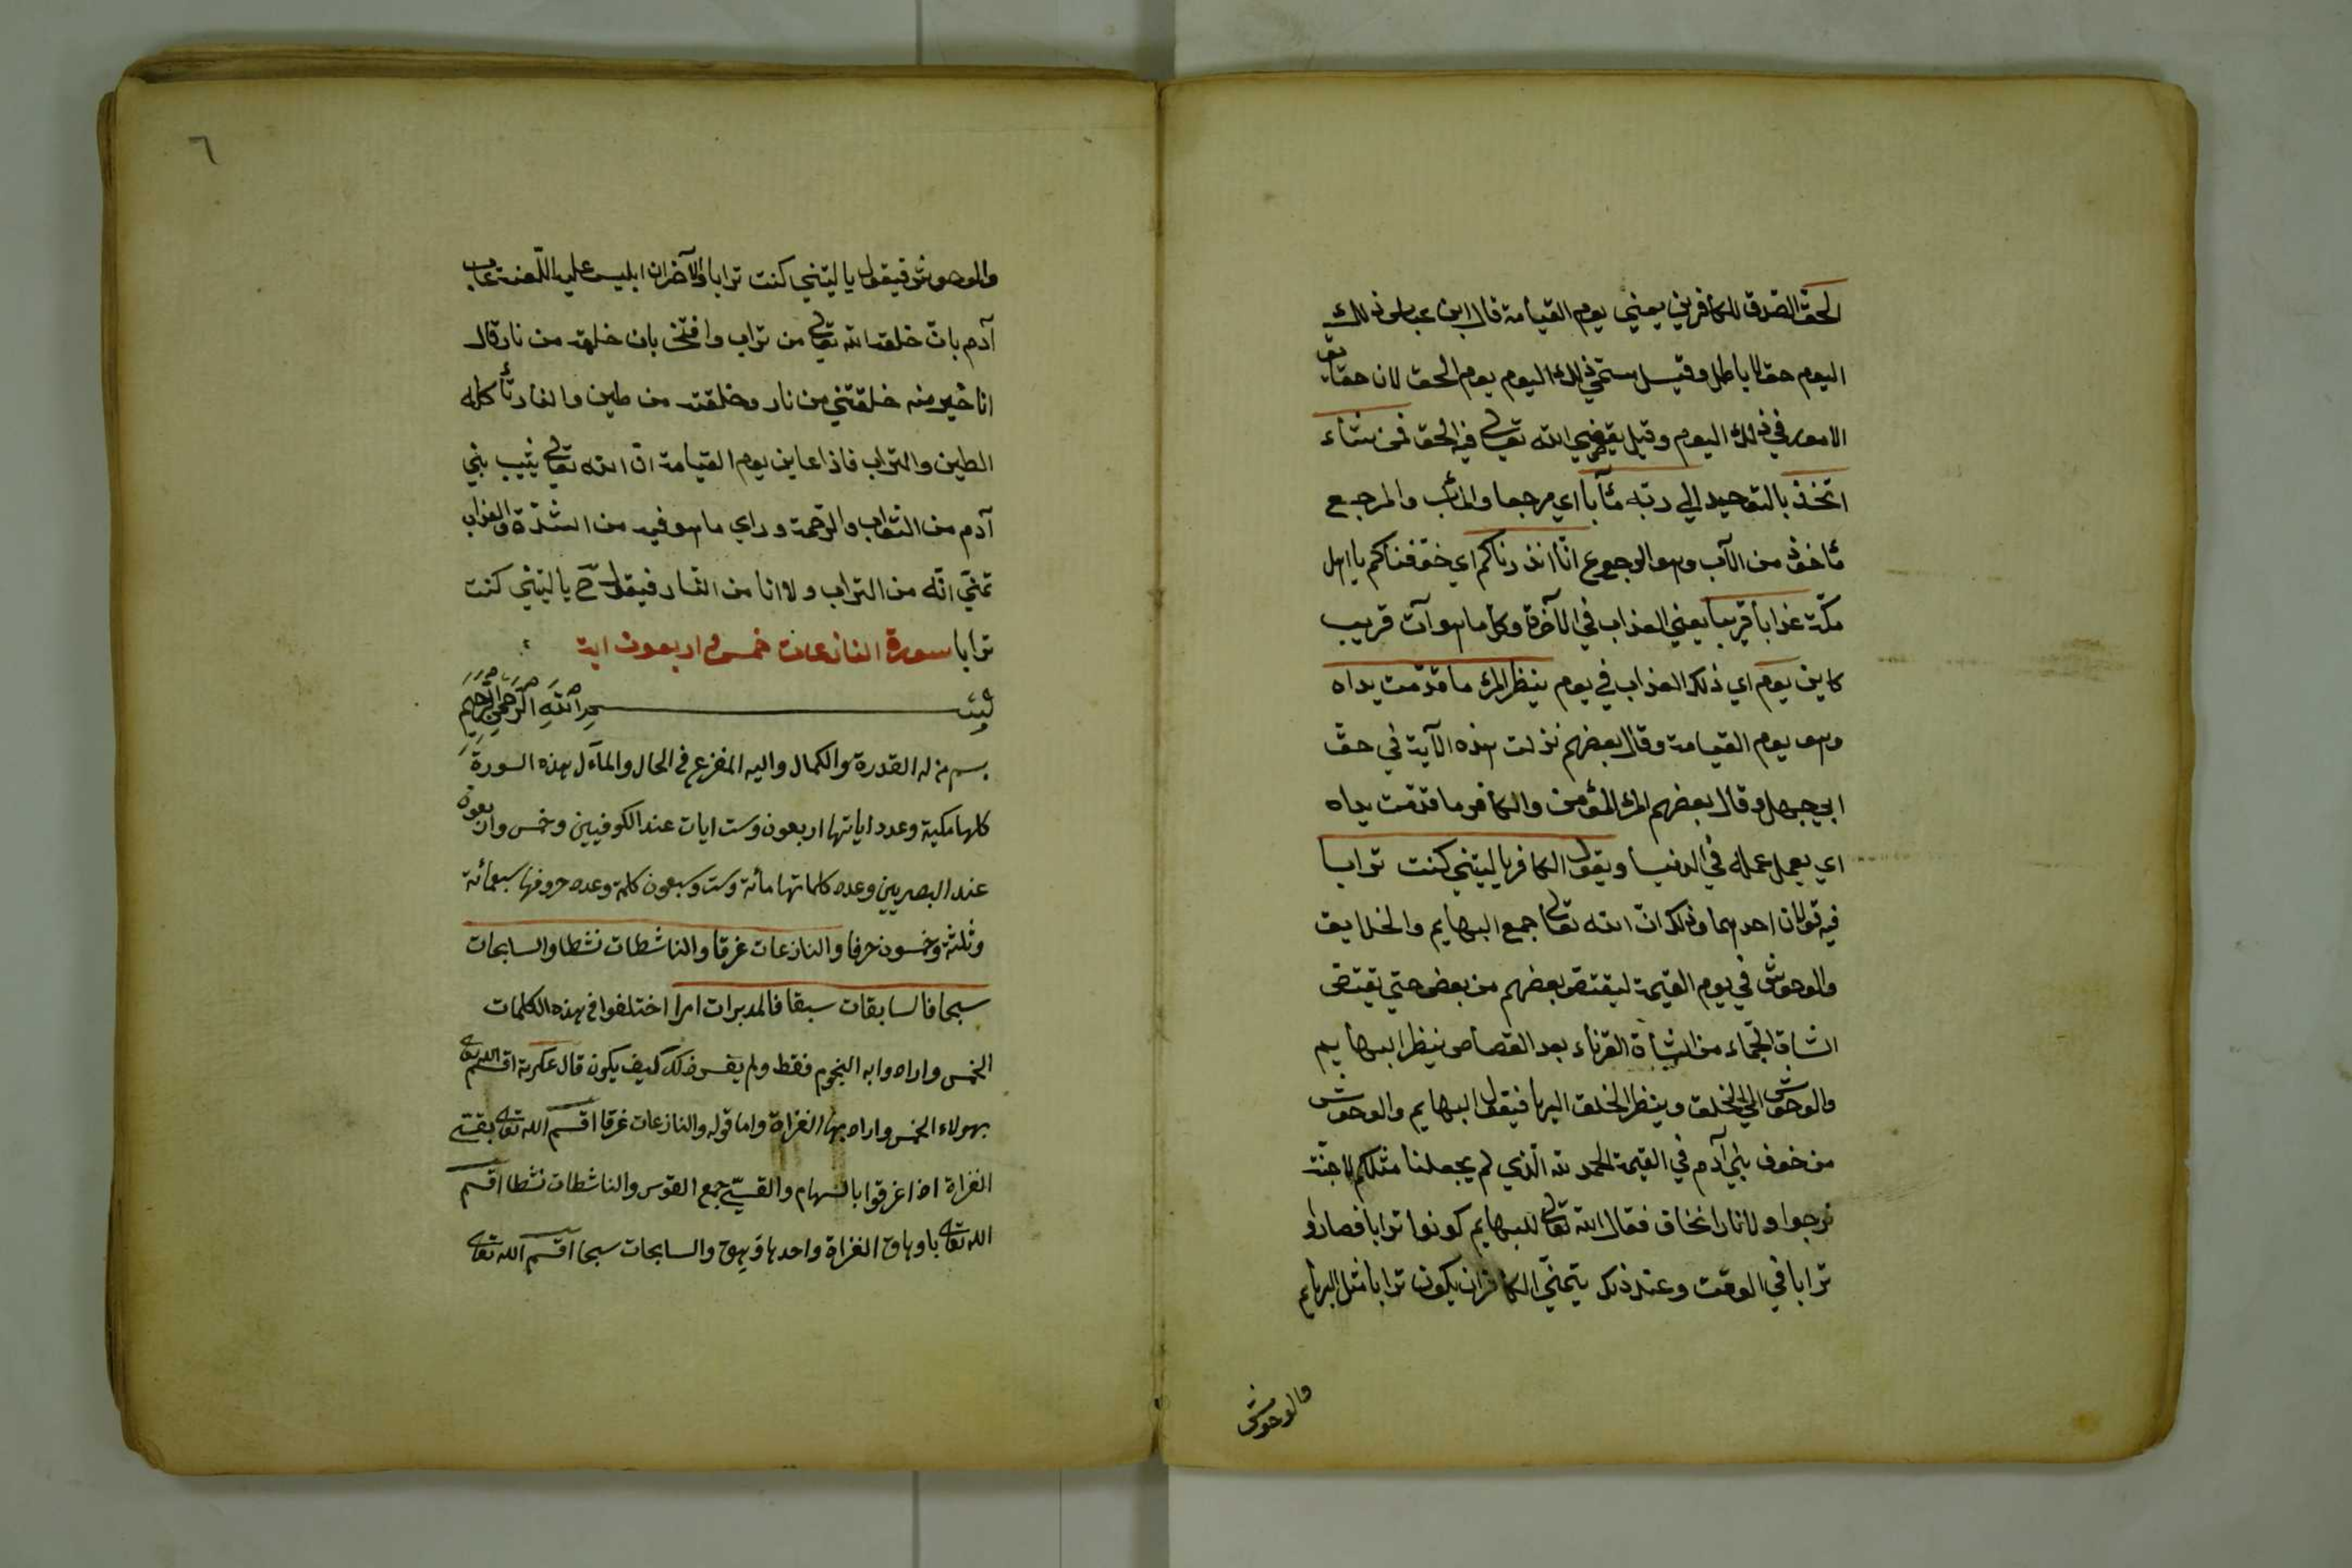 الحق الصدق للكافرين يعني يوم القيامة قال ابن عباس ذلك
اليوم حقا لا باطل وقيل ستمي ذلك اليوم يوم الحق لان حقايق
الامور في ذلك اليوم وقيل يقضي الله تعالى فيه الحق فمن شاء
اتخذ بالتوحيد الي ربه مآبا اي مرجعا والمآب والمرجع
مأخوذ من الآب وهو الرجوع انّا انذرناكم اي خوّفناكم يا اهل
مكّة عذابا قريبا يعني العذاب في الآخرة وكل ما هو آت قريب
كاين يوم اي ذلك العذاب في يوم ينظر المرء ما قدّمت يداه
وهو يوم القيامة وقال بعضهم نزلت هذه الآية في حقّ
ابي جهل وقال بعضهم المرء المؤمن والكافر ما قدّمت يداه
اي يعمل عمله في الدنيا ويقول الكافر يا ليتني كنت ترابا
فيه قولان احدهما وذلك انّ الله تعالى جمع البهايم والخلايق
والوحوش في يوم القيمة ليقتصّ بعضهم من بعض حتي يقتصّ
الشاة الجمّاء من الشاة القرناء بعد القصاص ينظر البهايم
والوحوش الي الخلق وينظر الخلق اليها فيقول البهايم والوحوش
من خوف بني آدم في القيمة الحمد لله الّذي لم يجعلنا مثلكم لا جنّة
نرجوا ولا نارا نخاف فقال الله تعالى للبهايم كونوا ترابا فصاروا
ترابا في الوقت وعند ذلك يتمنّي الكافر ان يكون ترابا مثل البهايم
والوحوش
٦
والوحوش فيقول يا ليتني كنت ترابا والآخر ان ابليس عليه اللّعنة عاب
آدم بانّ خلقه الله تعالى من تراب وافتخر بان خلقه من نار قال
انا خير منه خلقتني من نار وخلقته من طين والنار تأكله
الطين والتراب فاذا عاين يوم القيامة انّ الله تعالى يثيب بني
آدم من الثواب والرّحمة وراي ما هو فيه من الشدّة والعذاب
تمنّي انّه من التراب ولا انا من النار فيقول ح يا ليتني كنت
ترابا سورة النازعات خمس واربعون اية
بسم الله الرحمن الرحيم
بسم من له القدرة والكمال واليه المفزع في الحال والمآل هذه السورة
كلها مكية وعدد اياتها اربعون وست ايات عند الكوفيين وخمس واربعون
عند البصريين وعدد كلماتها مأئة وست وسبعون كلمة وعدد حروفها سبعمائة
وثلثة وخمسون حرفا والنازعات غرقا والناشطات نشطا والسابحات
سبحا فالسابقات سبقا فالمدبرات امرا اختلفوا في هذه الكلمات
الخمس واراد وابه النجوم فقط ولم يفسر ذلك كيف يكون قال عكرمة اقسم الله تعالى
بهولاء الخمس واراد بها الغزاة واما قوله والنازعات غرقا اقسم الله تعالى بقسّي
الغزاة اذا غرقوا بالسهام والقسيّ جمع القوس والناشطات نشطا اقسم
الله تعالى باوهاق الغزاة واحدها وهق والسابحات سبحا اقسم الله تعالى